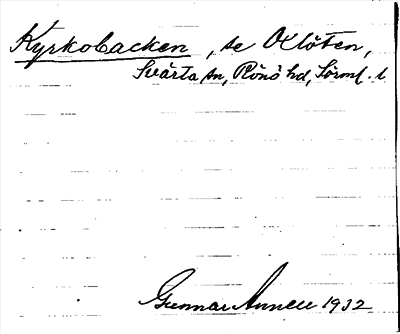 Kyrkobacken, se Klöten,
Svärta sn, Rönö hd, Sörml. l
Gunnar Annell 1932